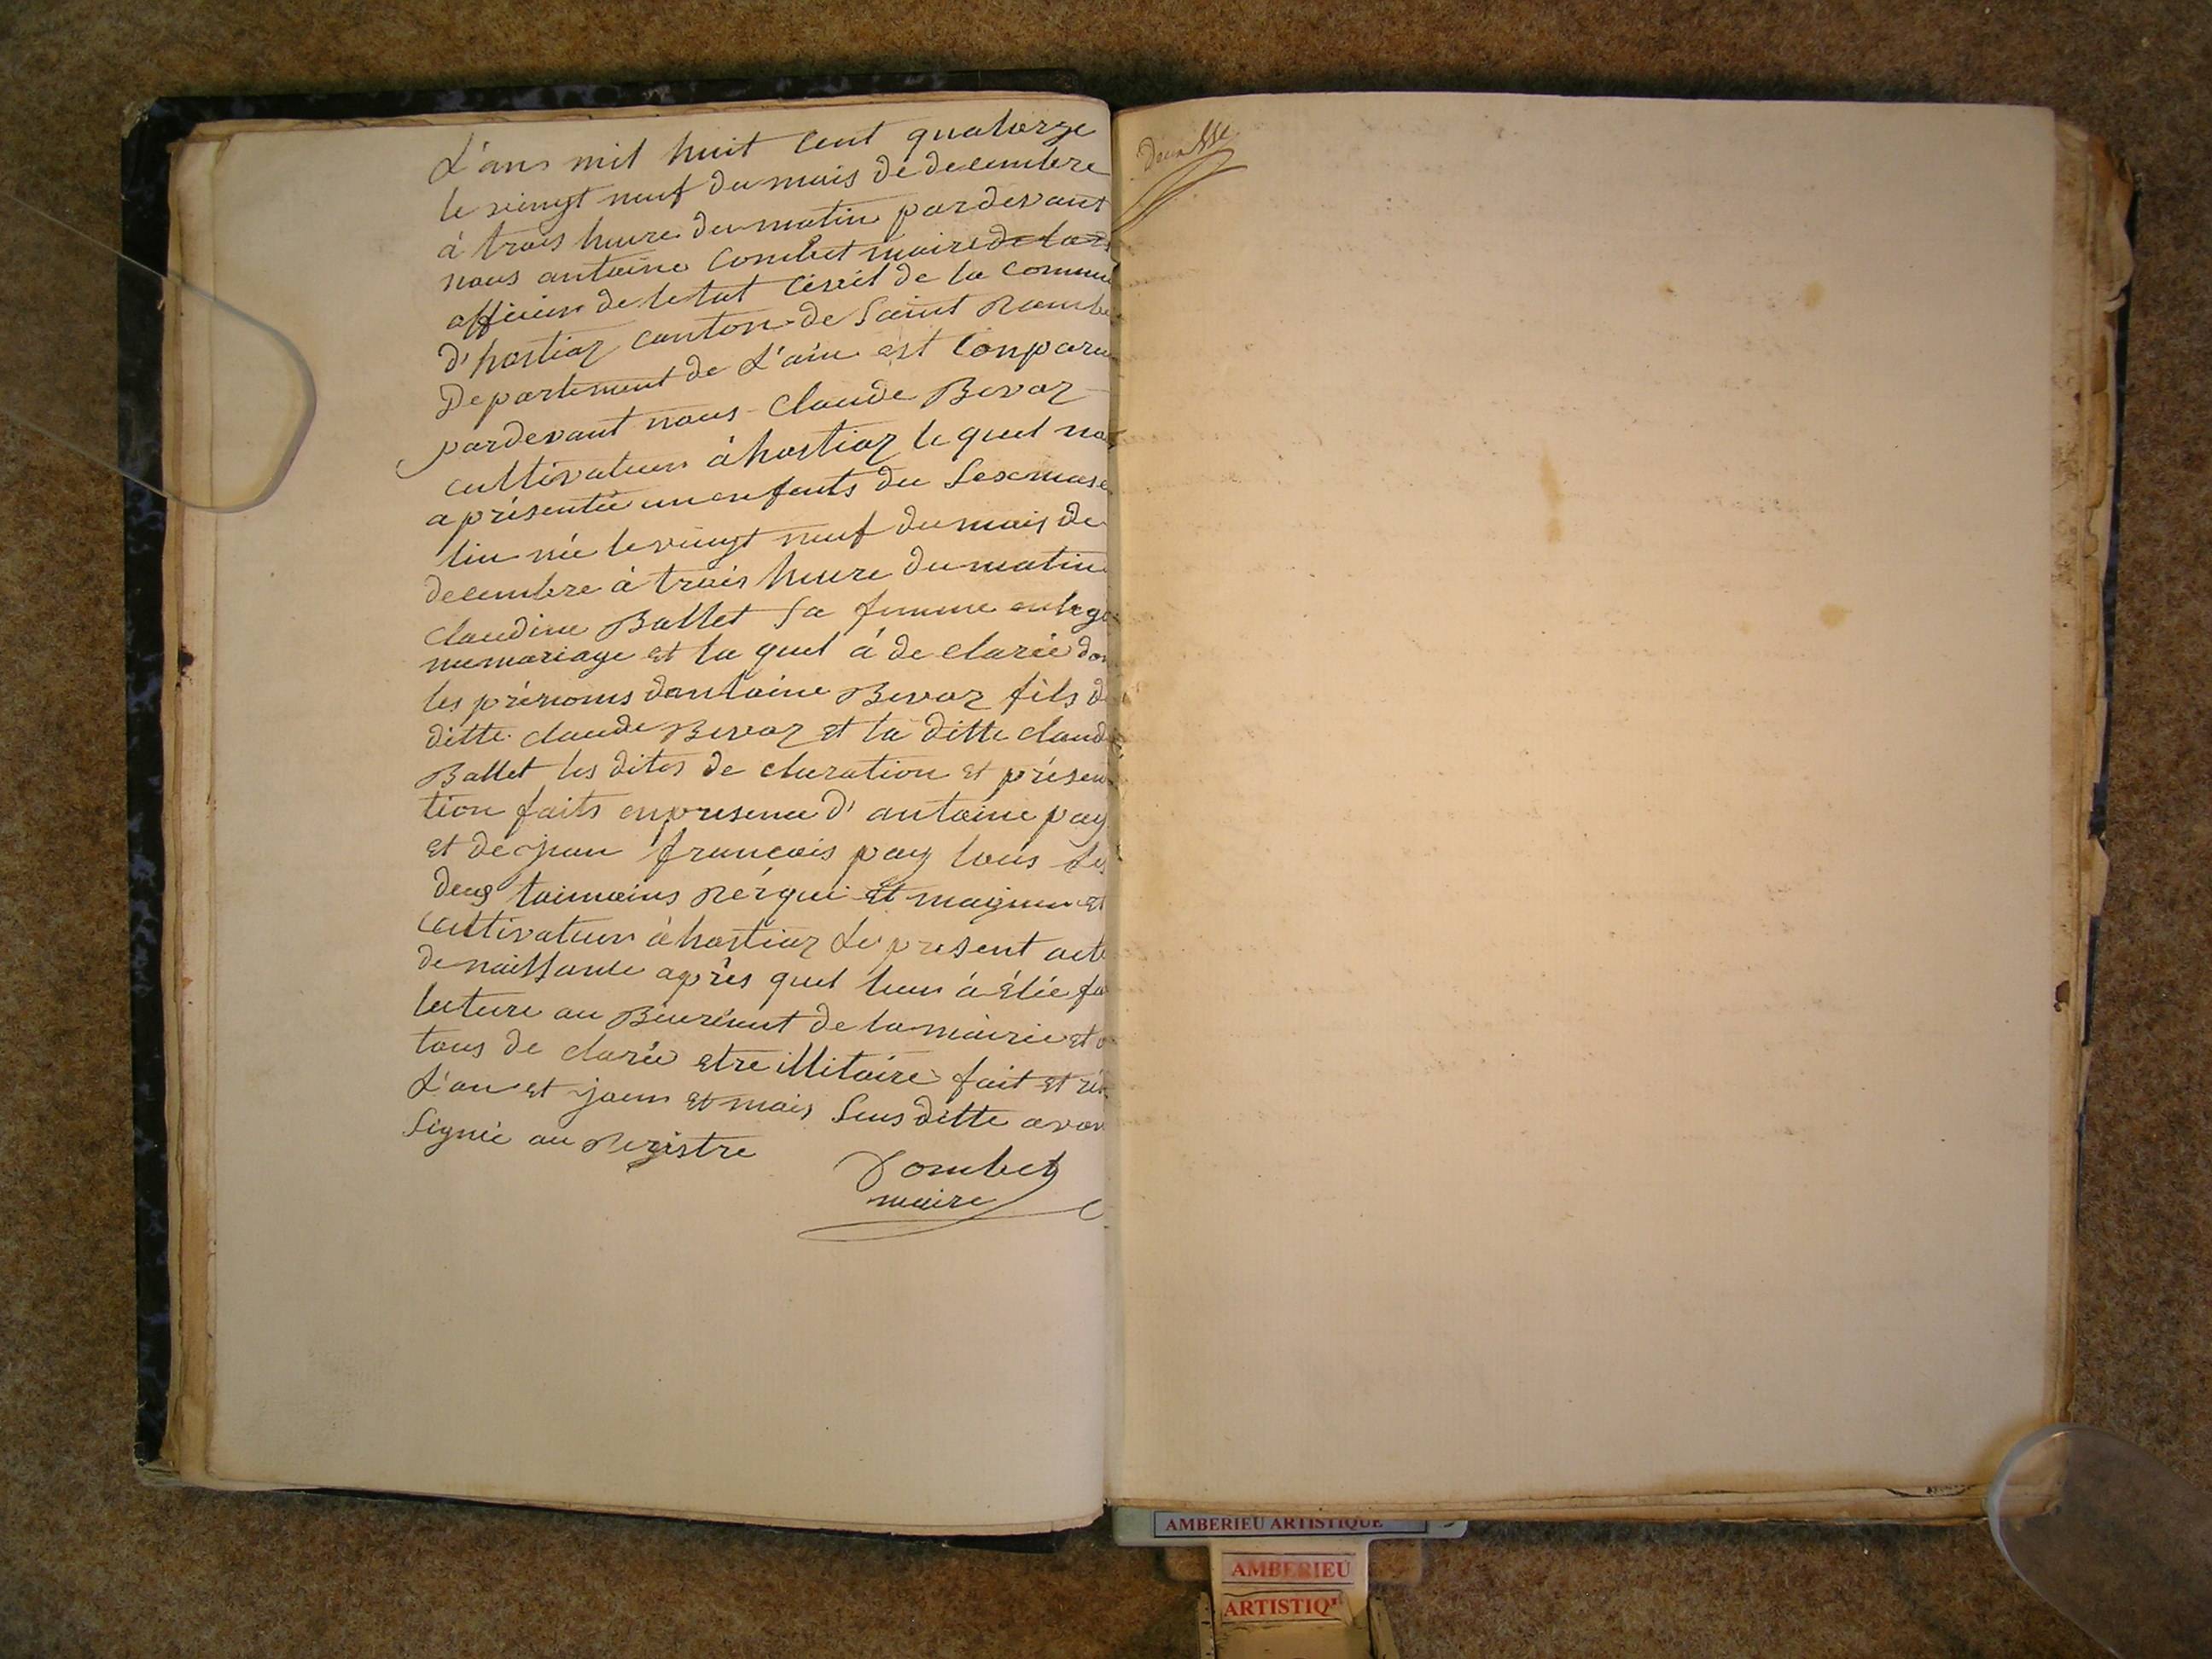 L'ans mil huit Cent quatorze
le vingt neuf du mois de decembre
à trois heure du matin pardevant
nous antoine Combet maire de la
officier de letat Cévil de la Commu
d'hostiaz canton de Saint Rambe
Departement de L'ain est Conparu
pardevant nous Claude Bevoz
cultivateur à hostiaz le quel nou
a présentée un enfents du Sexe mascu
lin née le vingt neuf du mois de
decembre à trois heure du matin
Claudine Ballet Sa femme en lege
me mariage et la quel à de clarée don
les prénoms dantoine Bevoz fils d
ditte claude Bevoz et la ditte claud
Ballet les dites de claration et présen
tion faits en presence d' antoine pay
et de jean francois pay tous Les
deus taimoins réqui et majeur et
Cultivateur à hostiaz Le present acte
de naissance après quel leur à étée fa
lecture au Bureaut de la mairie et o
tous de clarée etre illitaire fait et ré
L'an et jour et mois Sus ditte avon
Signée au Registre
Combet
maire
AMBERIEU ARTISTIQUE
AMBERIEU
ARTISTIQ